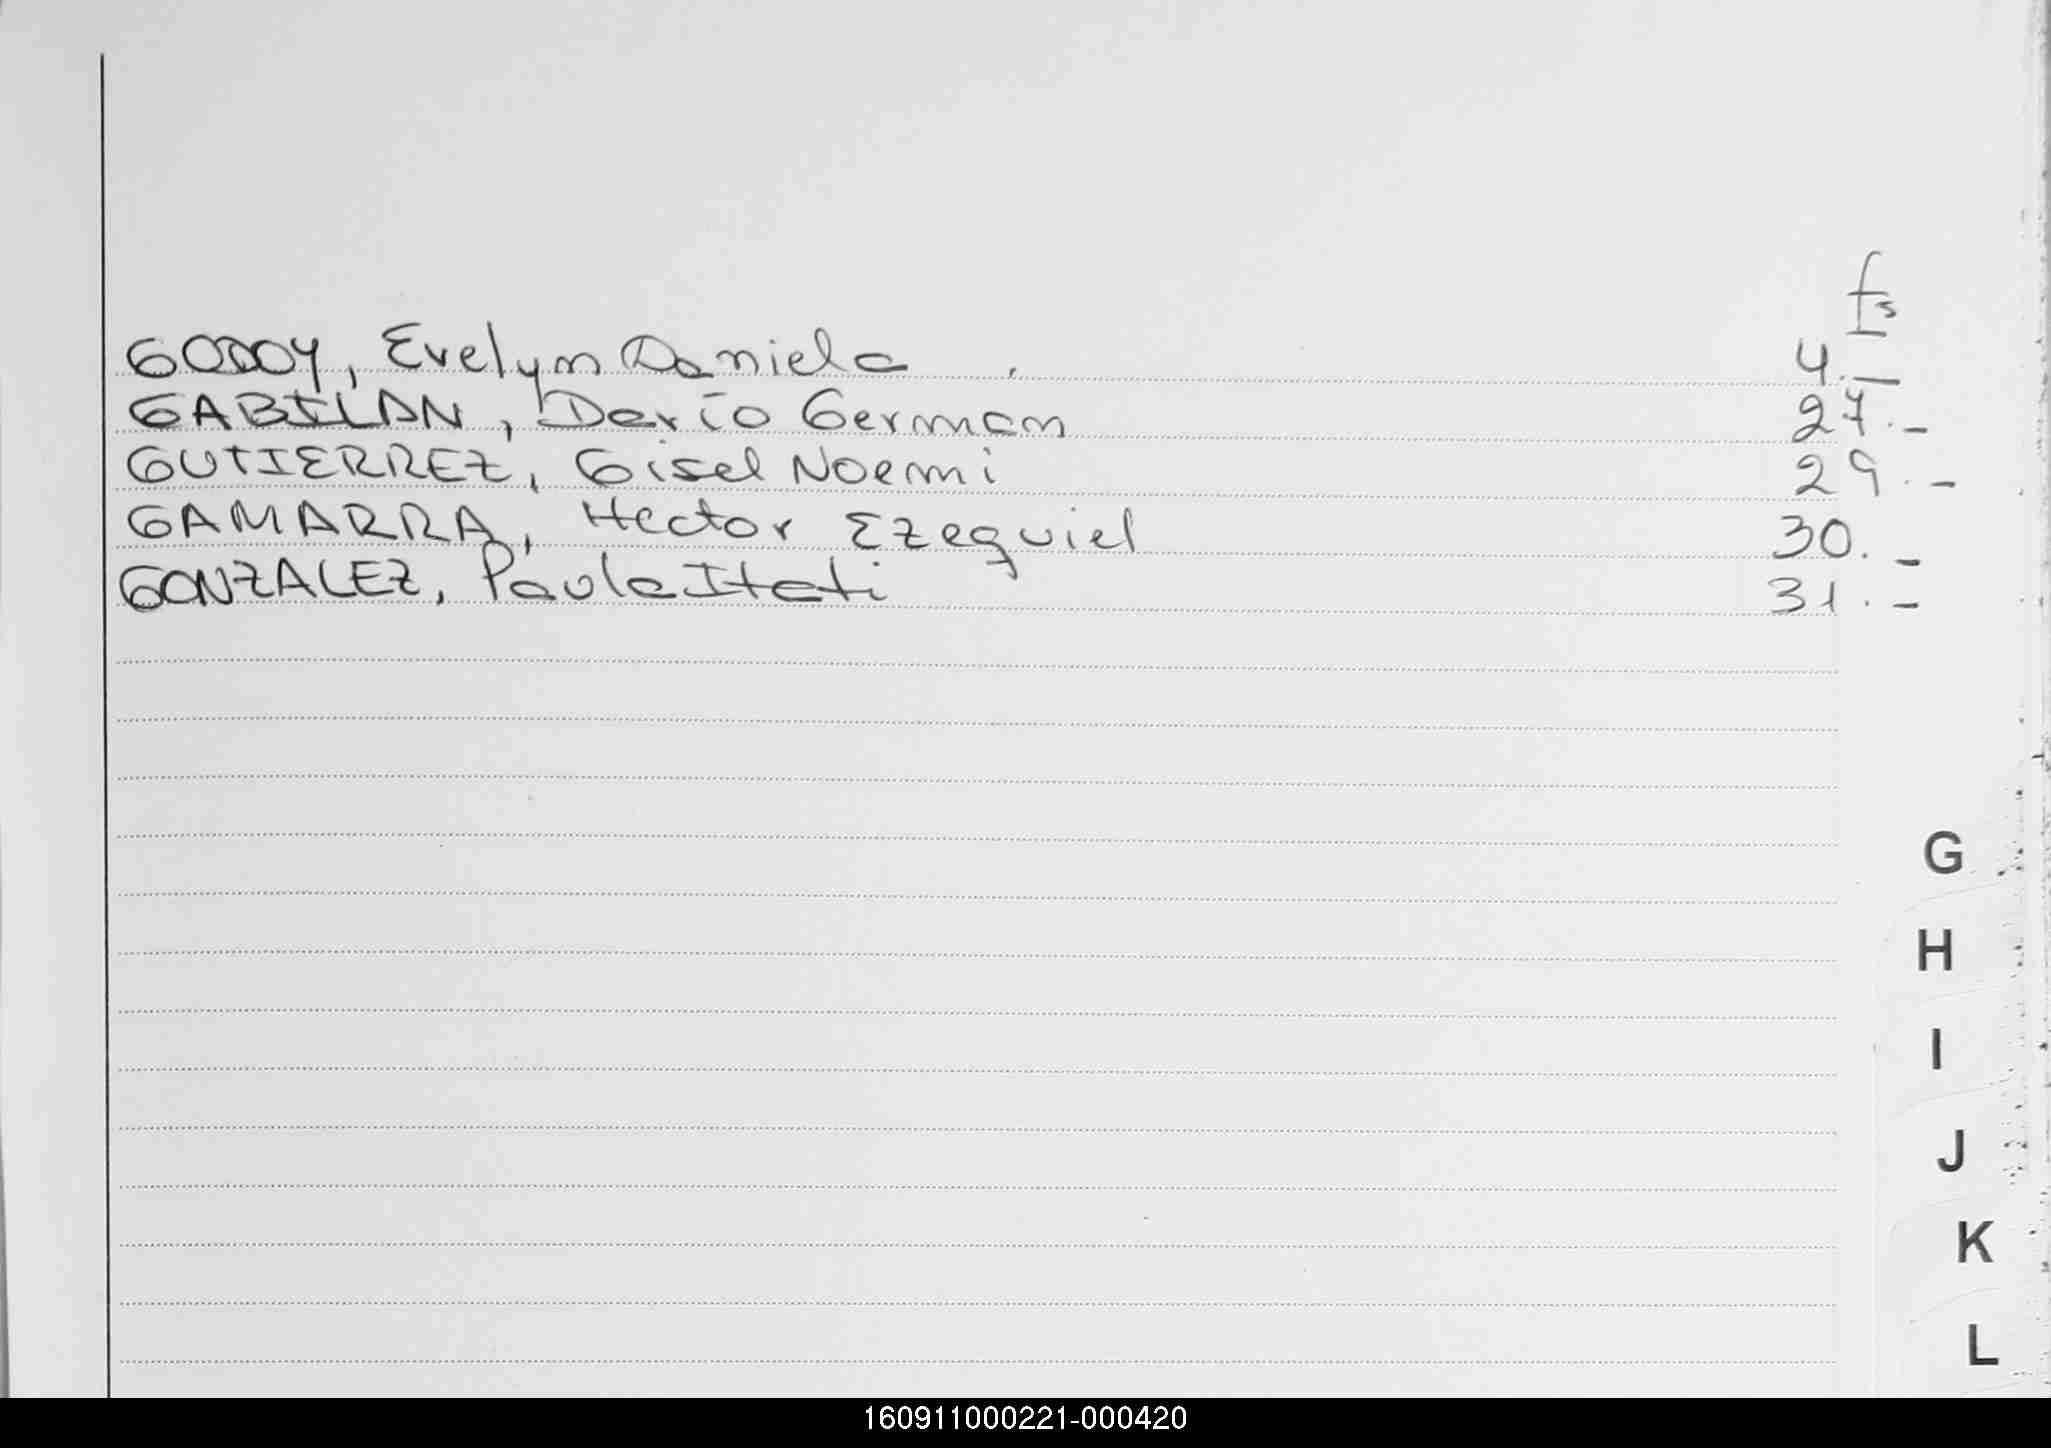 fs
GODOY, Evelyn Daniela . 4.—
GABILAN, Darío German 27.-
GUTIERREZ, Gisel Noemi 29.-
GAMARRA, Hector Ezequiel 30.-
GONZALEZ, Paula Itati 31.-
G
H
I
J
K
L
160911000221-000420